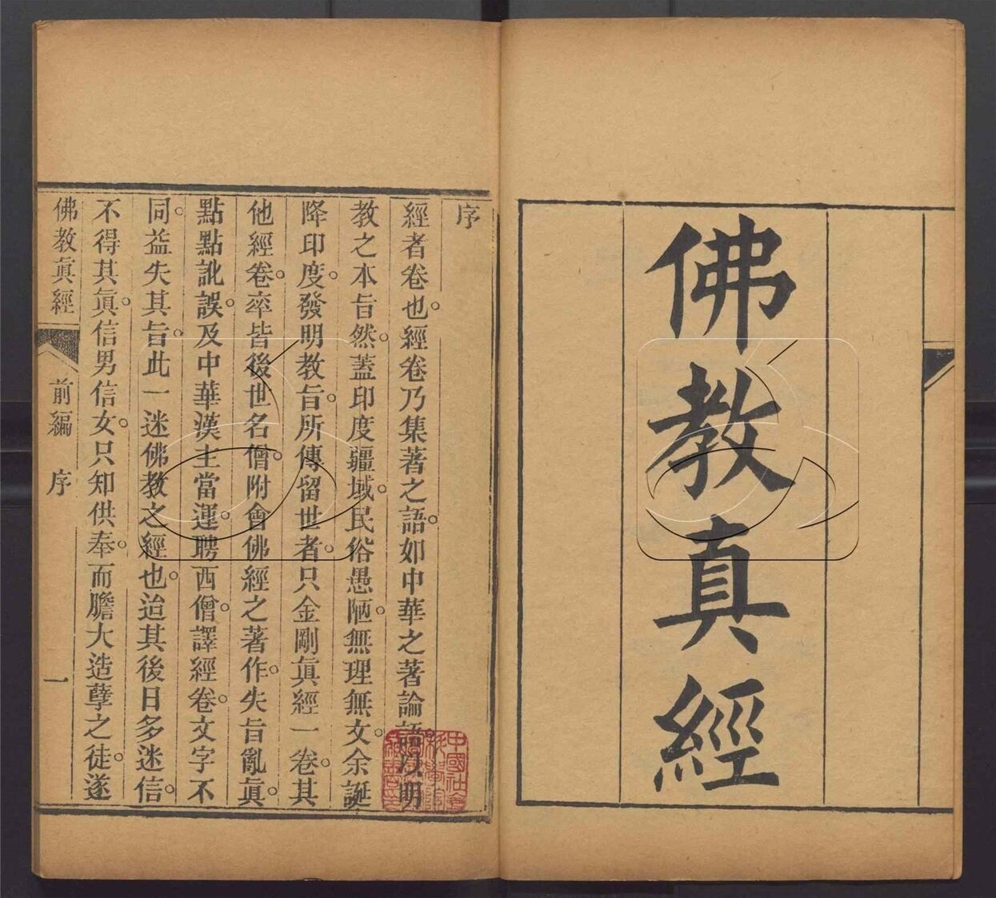 佛教真經
序
經者卷也。經卷乃集著之語。如中華之著論語以明
教之本旨。然蓋印度疆域。民俗愚陋。無理無文。余誕
降印度。發明教旨。所傳留世者。只金剛眞經一卷。其
他經卷。卒皆後世名僧。附會佛經之著作。失旨亂眞。
點點訛誤。及中華漢主當運。聘西僧。譯經卷。文字不
同。益失其旨。此一迷佛教之經也。迨其後日多迷信。
不得其眞。信男信女。只知供奉。而膽大造孽之徒。遂
佛教眞經 前編 序 一